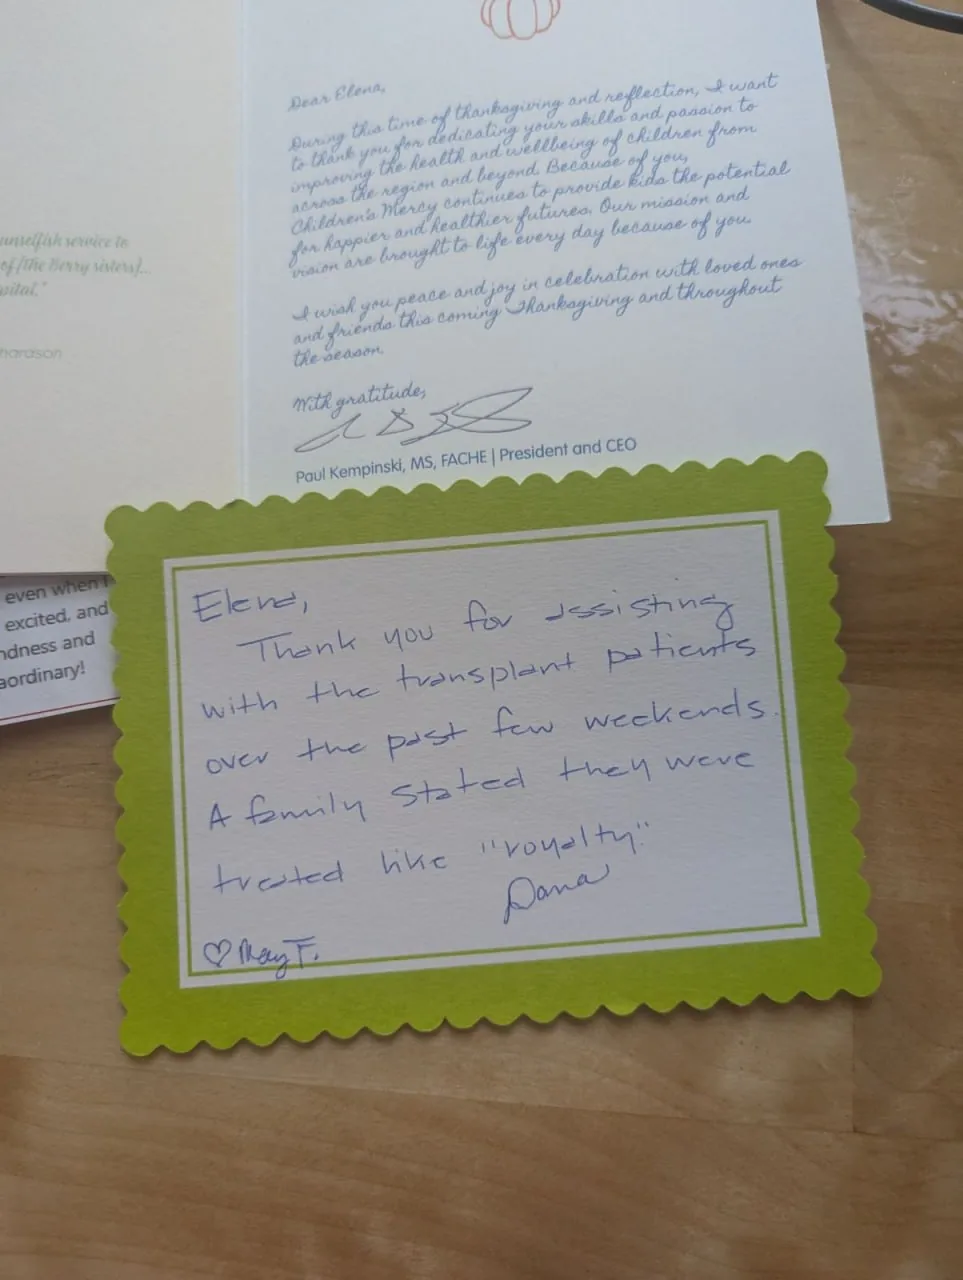 unselfish service to
of [the Berry sisters]...
pital."
hardson
Dear Elena,
During this time of thanksgiving and reflection, I want
to thank you for dedicating your skills and passion to
improving the health and wellbeing of children from
across the region and beyond. Because of you,
Children's Mercy continues to provide kids the potential
for happier and healthier futures. Our mission and
vision are brought to life every day because of you.
I wish you peace and joy in celebration with loved ones
and friends this coming Thanksgiving and throughout
the season.
With gratitude,
Paul Kempinski, MS, FACHE | President and CEO
even when I
excited, and
ndness and
aordinary!
Elena,
Thank you for assisting
with the transplant patients
over the past few weekends.
A family stated they were
treated like "royalty".
Dana
♡ May F.